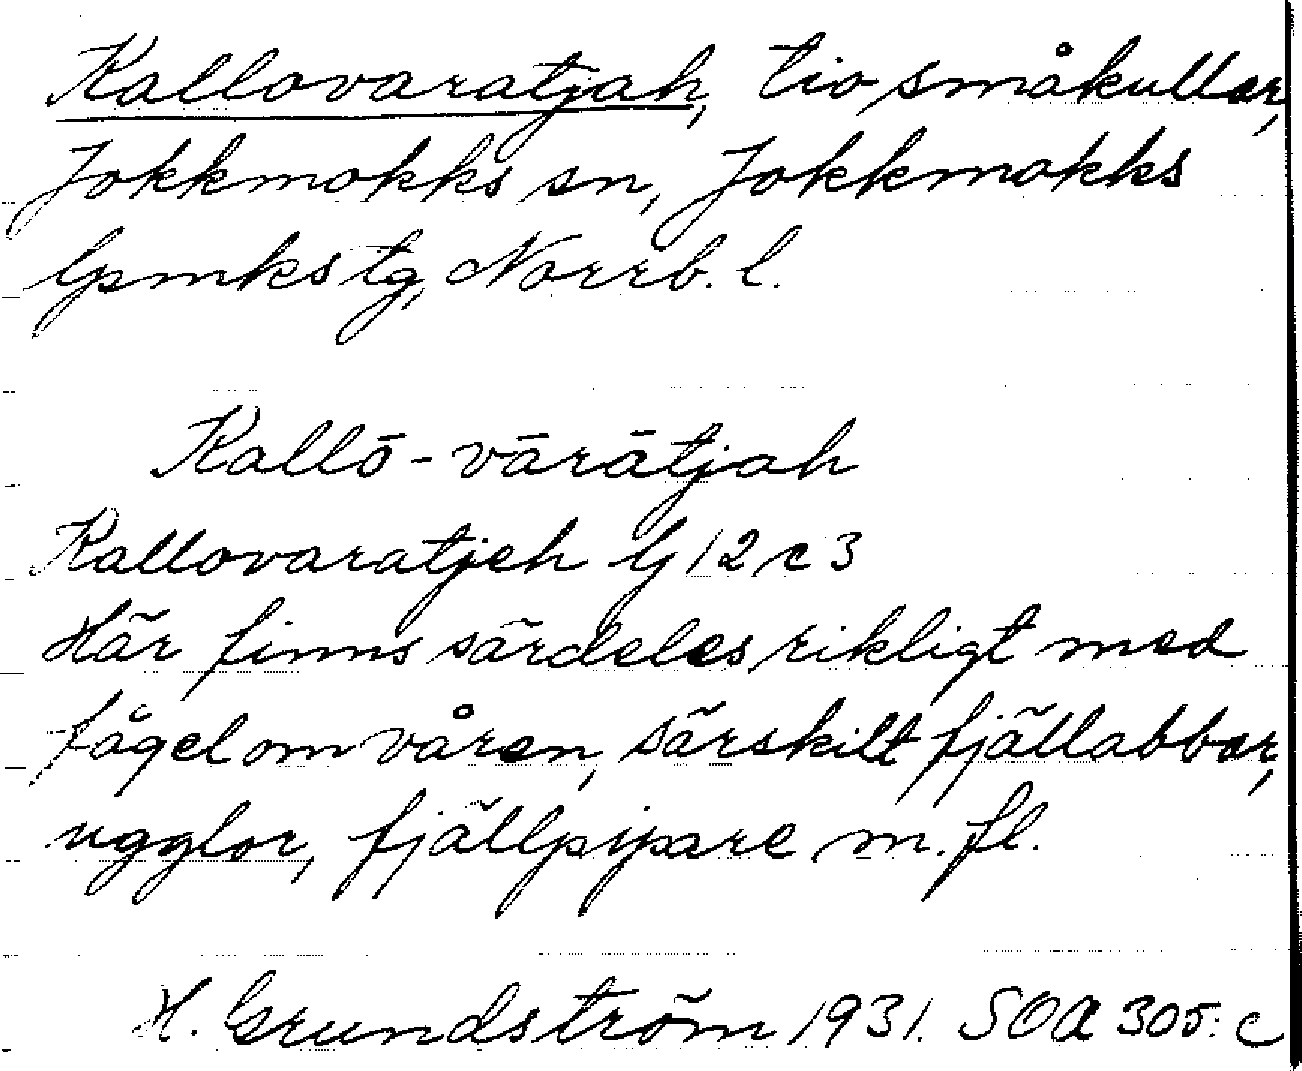 Kallovaratjah, tio småkullar,
Jokkmokks sn, Jokkmokks
lpmks tg, Norrb. l.
Kallō-vārātjah
Kallovaratjeh G 12 c 3
Här finns särdeles rikligt med
fågel om våren, särskilt fjällabbar,
ugglor, fjällpipare m.fl.
H. Grundström 1931. SOA 305: c